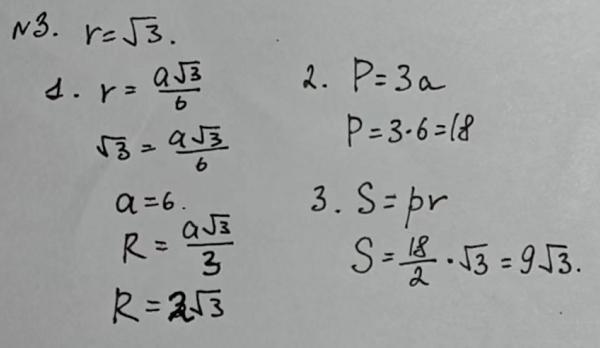 №3. r=√3.
1. r = a√3/6
√3 = a√3/6
a=6.
R = a√3/3
R = 2√3
2. P=3a
P=3·6=18
3. S=pr
S=18/2·√3=9√3.